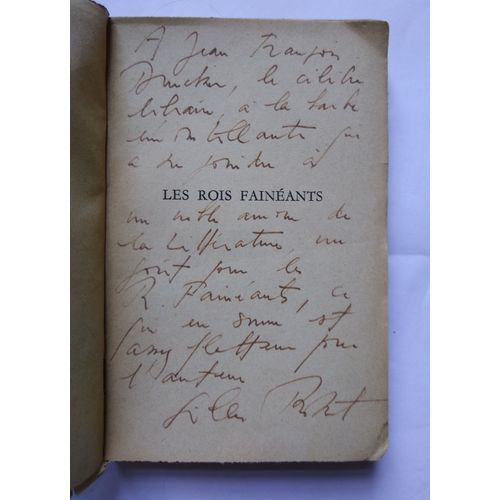 A Jean François
Drucker, le célèbre
libraire, à la barbe
émoustillante qui
a su joindre à
LES ROIS FAINÉANTS
un noble amour de
la Littérature un
goût pour les
R. Fainéants, ce
qui en somme est
assez flatteur pour
l'auteur